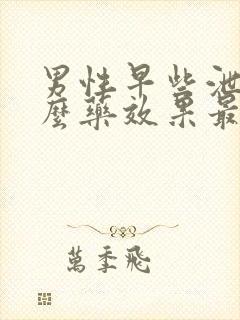 男性早些泄
麼藥效果最
萬季飛